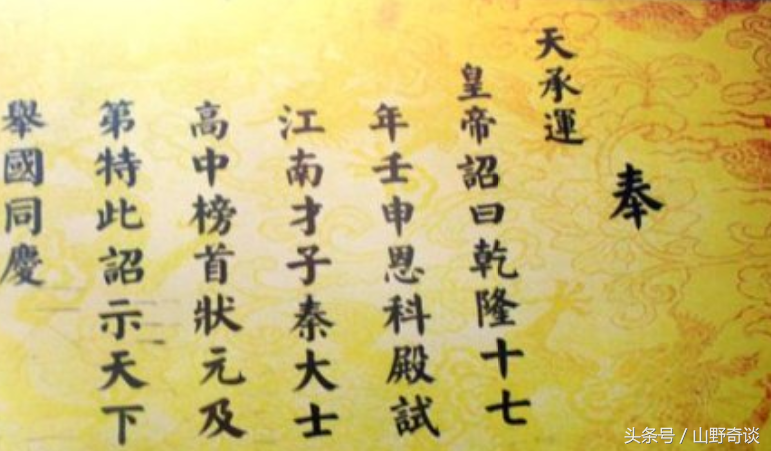 奉
天承運
皇帝詔曰乾隆十七
年壬申恩科殿試
江南才子秦大士
高中榜首狀元及
第特此詔示天下
舉國同慶
头条号 / 山野奇谈